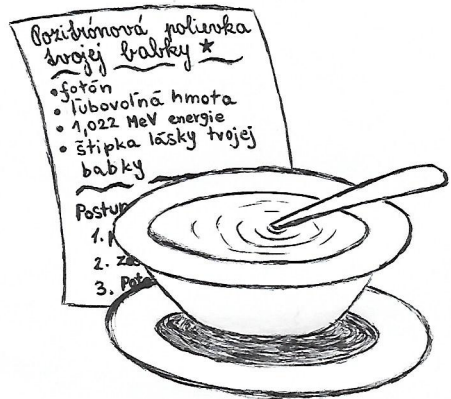 Pozitrónová polievka
tvojej babky ★
• fotón
• ľubovoľná hmota
• 1,022 MeV energie
• štipka lásky tvojej
babky
Postup
1.
2.
3.